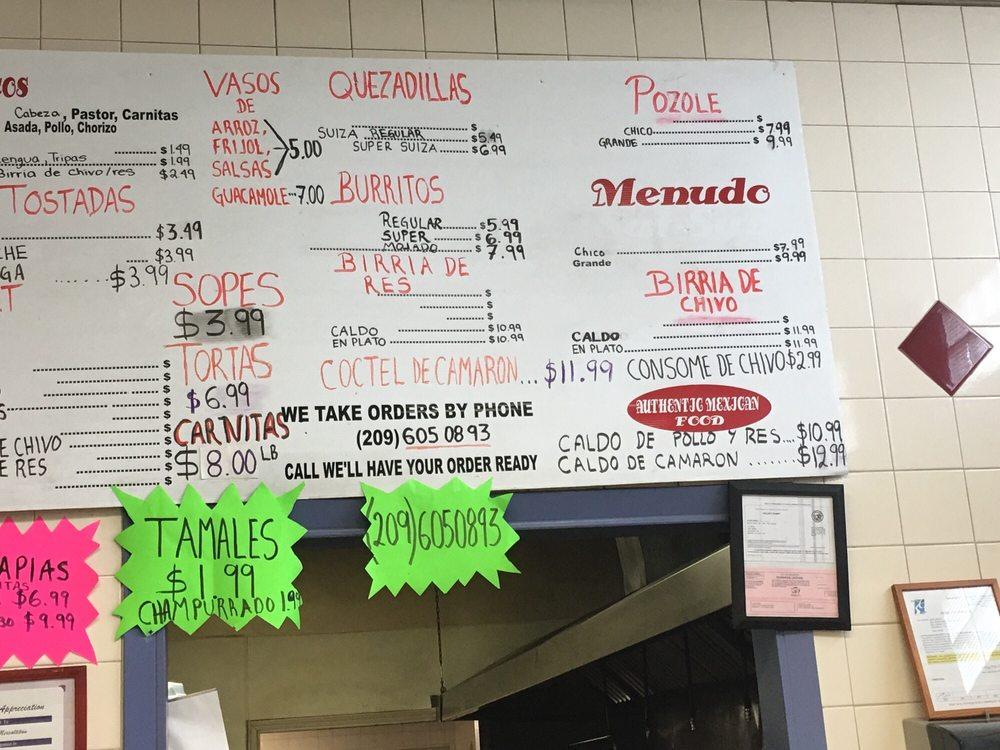 os
Cabeza, Pastor, Carnitas
Asada, Pollo, Chorizo
$1.49
engua, Tripas $1.99
Birria de Chivo/res $2.49
TOSTADAS
$3.49
HE $3.99
GA $3.99
T
$
$
$
$
E CHIVO $
E RES $
$
VASOS
DE
ARROZ,
FRIJOL,
SALSAS
5.00
GUACAMOLE 7.00
SOPES
$3.99
TORTAS
$6.99
CARNITAS
$8.00 LB
QUEZADILLAS
$
SUIZA REGULAR $5.49
SUPER SUIZA $6.99
BURRITOS
REGULAR $5.99
SUPER $6.99
MOJADO $7.99
BIRRIA DE
RES
$
$
$
CALDO $10.99
EN PLATO $10.99
COCTEL DE CAMARON... $11.99
WE TAKE ORDERS BY PHONE
(209) 605 0893
CALL WE'LL HAVE YOUR ORDER READY
POZOLE
$
CHICO $7.99
GRANDE $9.99
Menudo
Chico $7.99
Grande $9.99
BIRRIA DE
CHIVO
$
$
CALDO $11.99
EN PLATO $11.99
CONSOME DE CHIVO $2.99
AUTHENTIC MEXICAN
FOOD
CALDO DE POLLO Y RES.... $10.99
CALDO DE CAMARON ....... $12.99
APIAS
ITAS
$6.99
$9.99
TAMALES
$1.99
CHAMPURRADO 1.99
(209)6050893
Appreciation